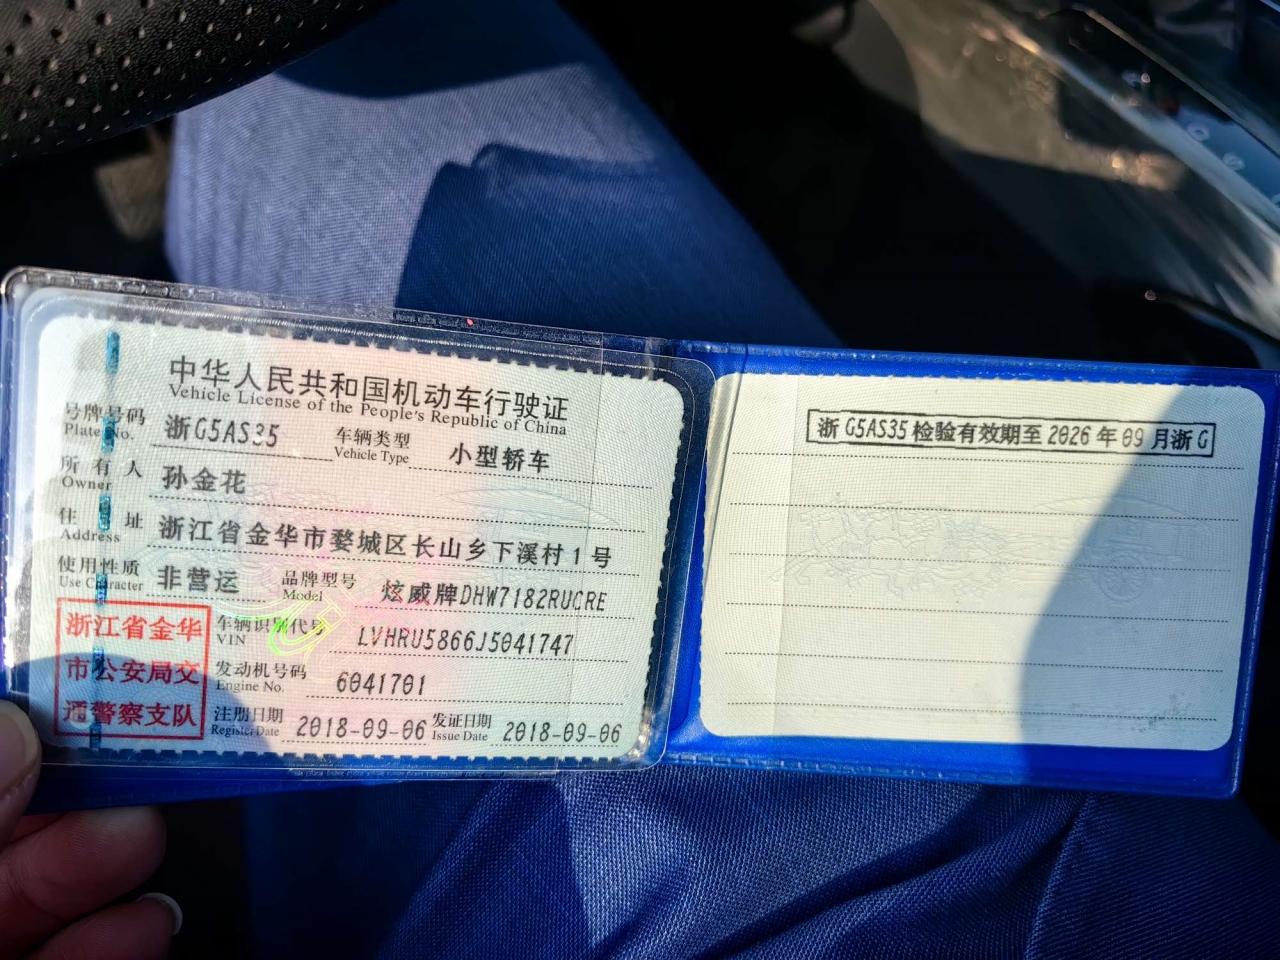 中华人民共和国机动车行驶证
Vehicle License of the People's Republic of China
号牌号码 浙G5AS35 车辆类型 小型轿车
Plate No. Vehicle Type
所有人 孙金花
Owner
住址 浙江省金华市婺城区长山乡下溪村1号
Address
使用性质 非营运 品牌型号 炫威牌DHW7182RUCRE
Use Character Model
浙江省金华
市公安局交
通警察支队
车辆识别代号 LVHRU5866J5041747
VIN
发动机号码 6041701
Engine No.
注册日期 2018-09-06 发证日期 2018-09-06
Register Date Issue Date
浙G5AS35检验有效期至2026年09月浙G